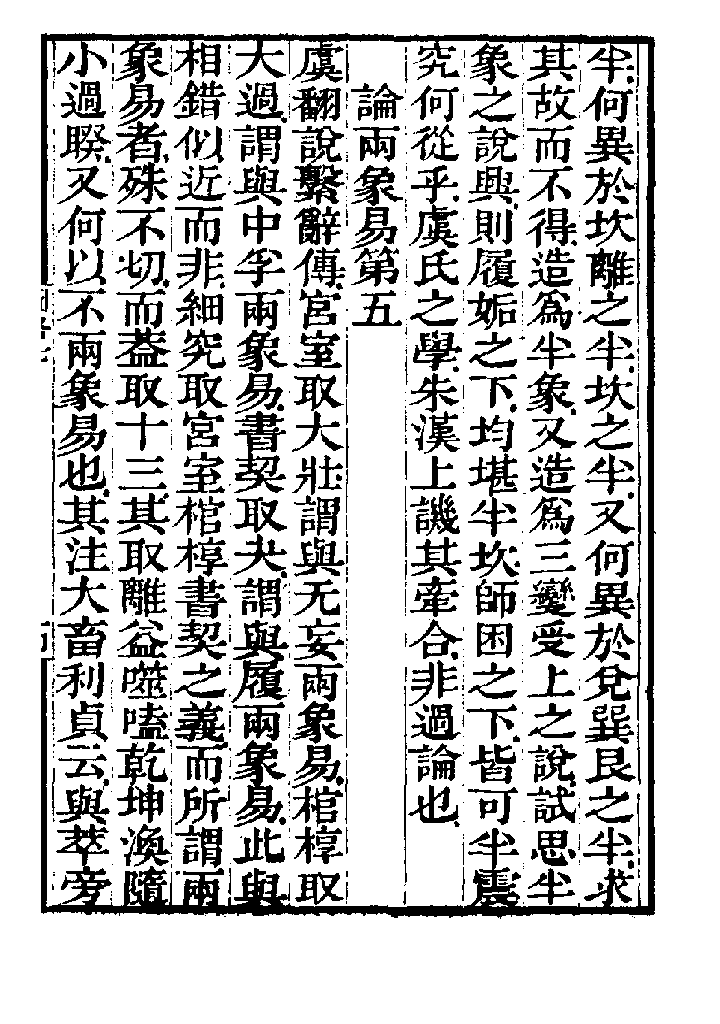 半何異於坎離之半坎之半又何異於兌巽艮之半求
其故而不得造爲半象又造爲三變受上之說試思半
象之說興則履姤之下均堪半坎師困之下皆可半震
究何從乎虞氏之學朱漢上譏其牽合非過論也
論兩象易第五
虞翻說繫辭傳宮室取大壯謂與无妄兩象易棺椁取
大過謂與中孚兩象易書契取夬謂與履兩象易此與
相錯似近而非細究取宮室棺椁書契之義而所謂兩
象易者殊不切而葢取十三其取離益噬嗑乾坤渙隨
小過睽又何以不兩象易也其注大畜利貞云與萃旁